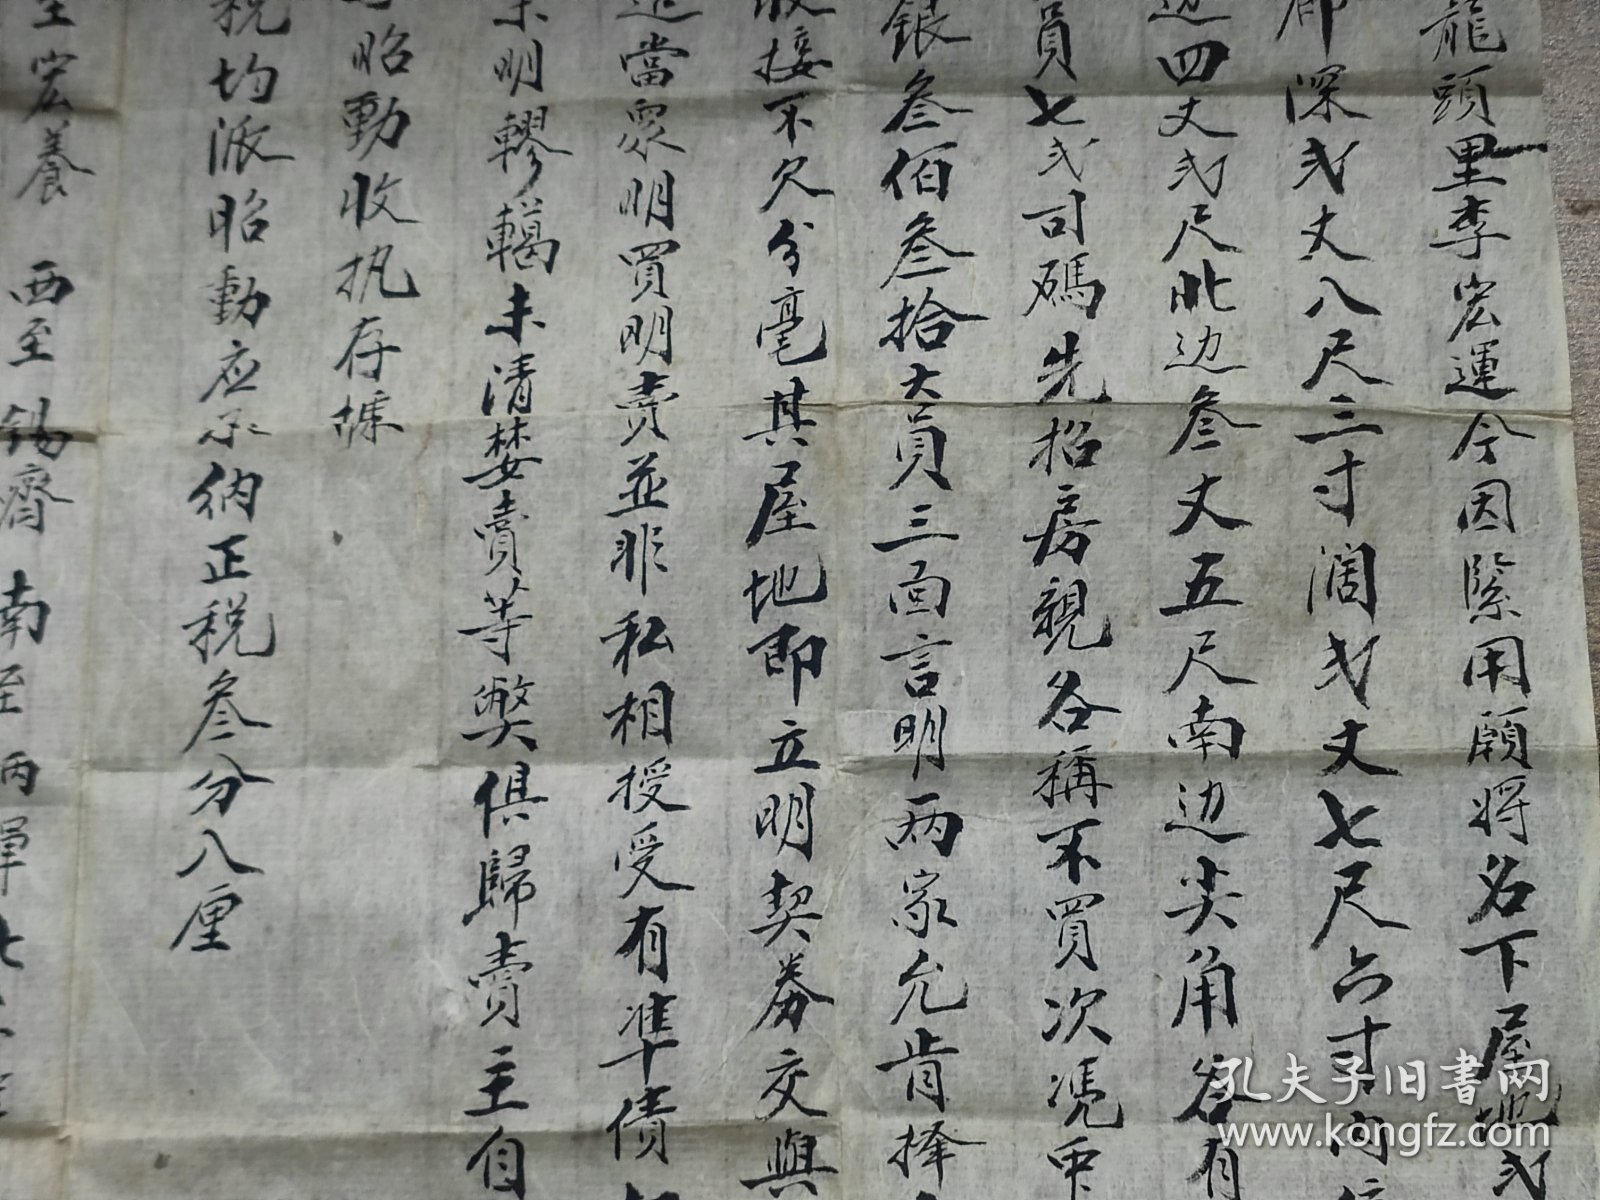 龍頭里李宏運今因緊用願將名下屋地弍
深弍丈八尺三寸濶弍丈七尺六寸
边四丈弍尺北边叁丈五尺南边尖角各有
員七弍司碼先招房親各稱不買次凴中
銀叁佰叁拾大員三面言明两家允肯擇
接不欠分毫其屋地即立明契券交與
當衆明買明卖並非私相授受有準債
未明轇轕未清婪賣等獘俱歸賣主自
昭動收执存㨿
税均派昭動应承納正税叁分八厘
至宏養 西至錫濟 南至丙軍北
孔夫子旧書网
www.kongfz.com